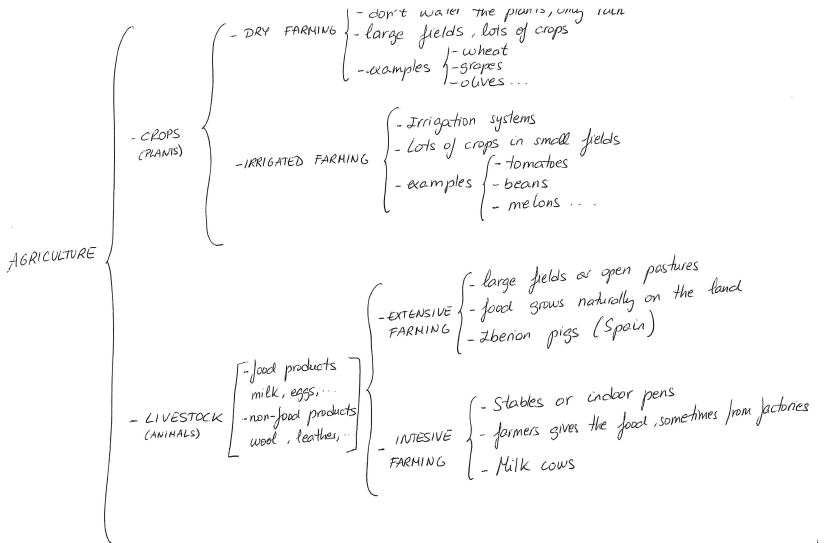 - don't water the plants, only rain
- DRY FARMING
- large fields, lots of crops
- examples
- wheat
- grapes
- olives ...
- CROPS
(PLANTS)
- IRRIGATED FARMING
- Irrigation systems
- Lots of crops in small fields
- examples
- tomatoes
- beans
- melons ....
AGRICULTURE
- LIVESTOCK
(ANIMALS)
- food products
milk, eggs, ...
- non-food products
wool, leather, ..
- EXTENSIVE
FARMING
- large fields or open pastures
- food grows naturally on the land
- Iberian pigs (Spain)
- INTESIVE
FARMING
- Stables or indoor pens
- farmers gives the food, sometimes from factories
- Milk cows